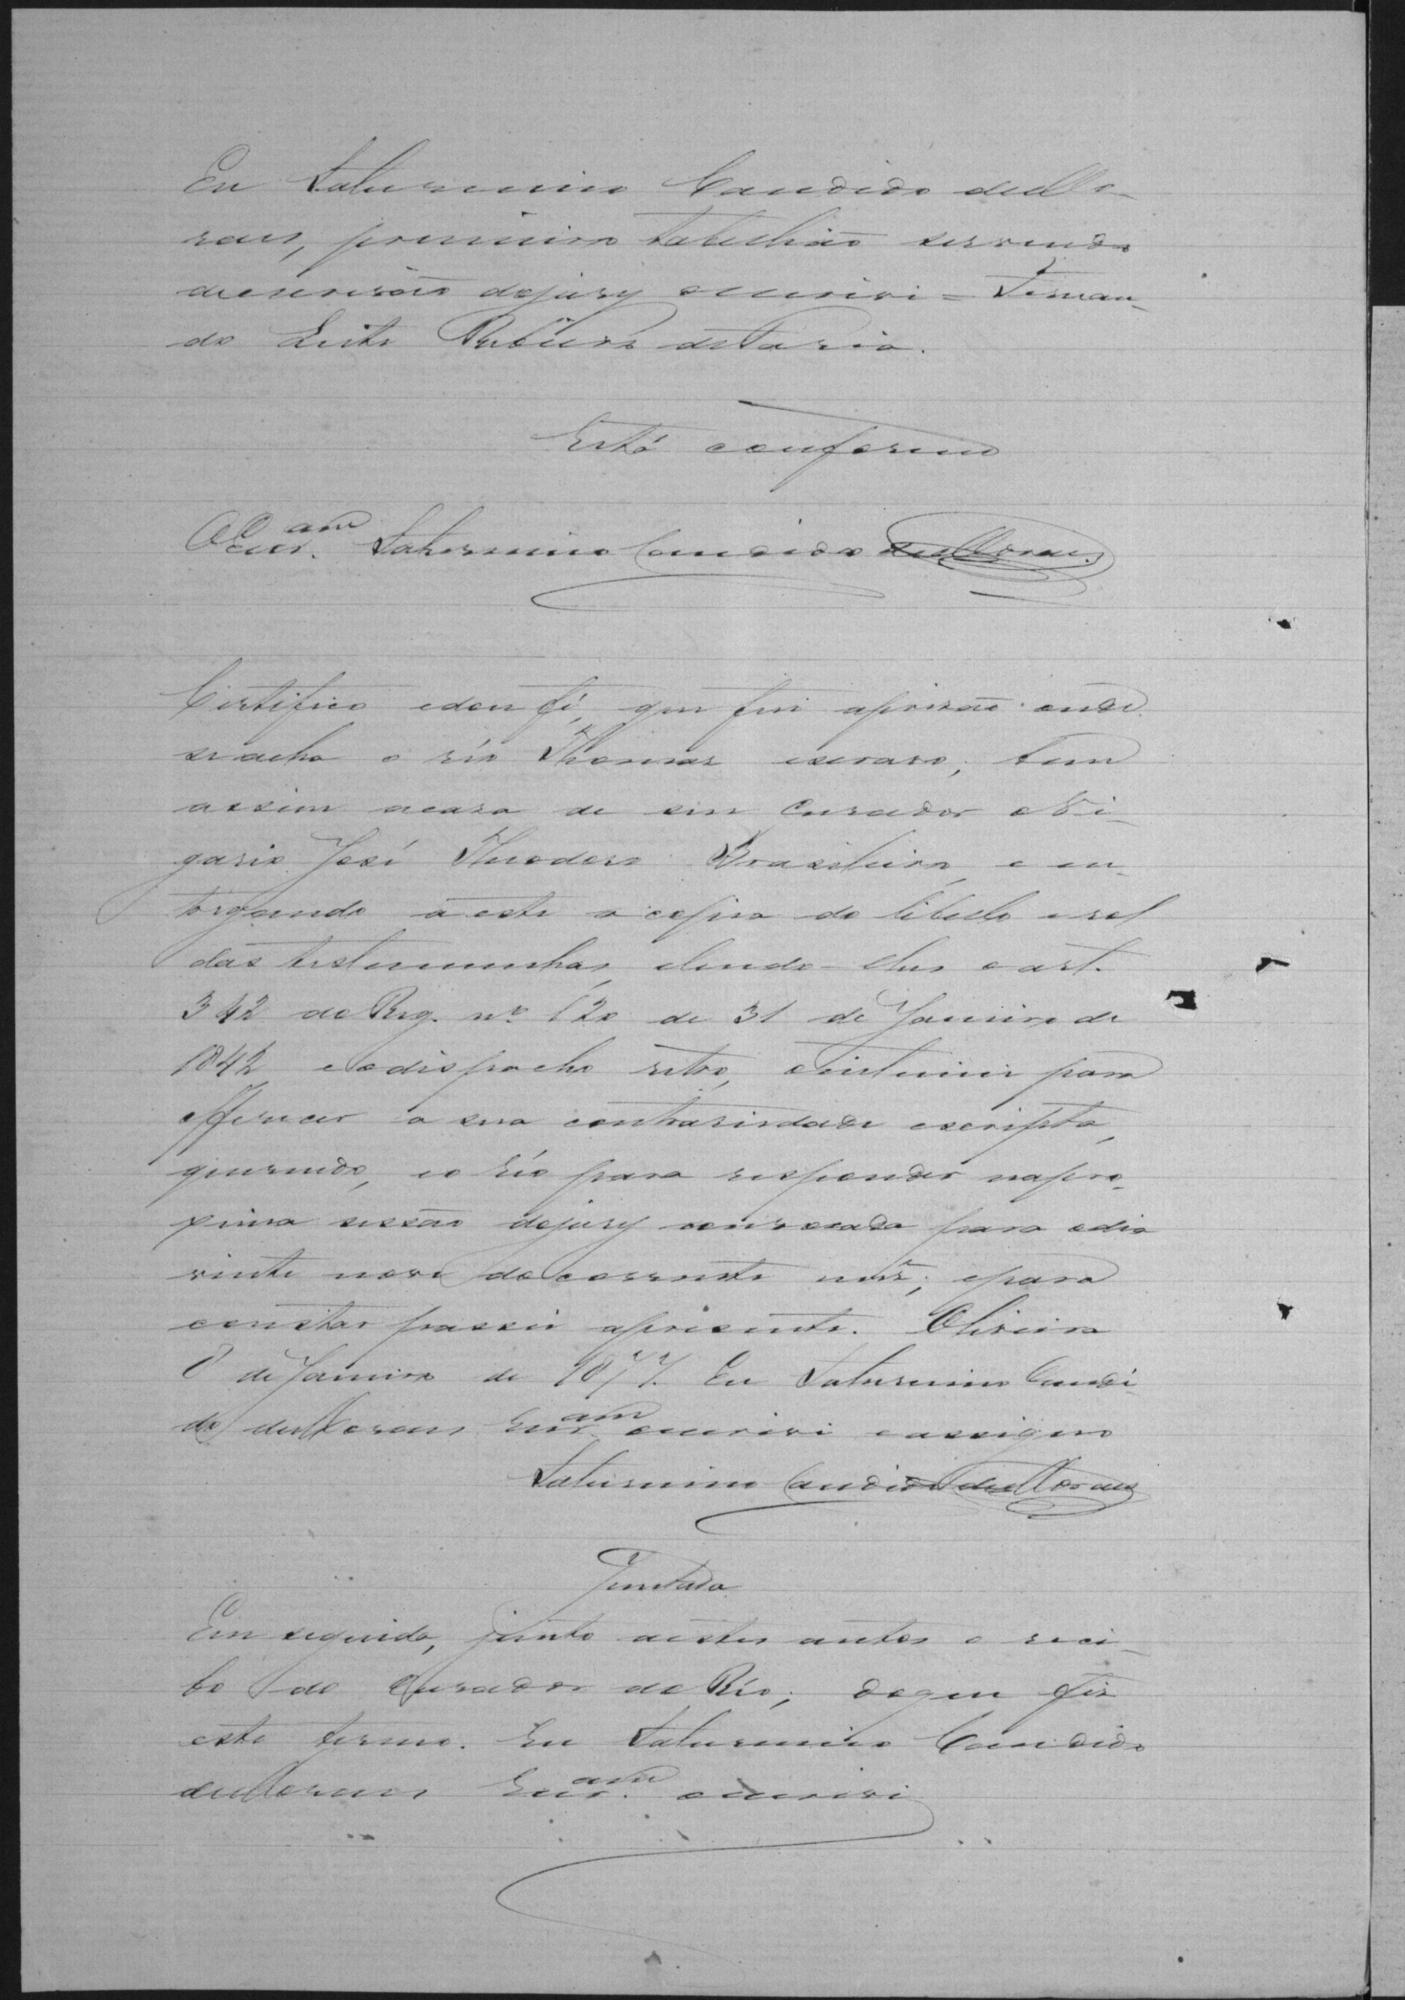 Eu Saturnino Candido de Mo-
raes, primeiro tabellião servindo
de escrivão do jury escrivi = Fernan-
do Leite Ribeiro de Faria.
Está conforme
O Escr.am Saturnino Candido de Moraes
Certifico e dou fé, que fui a prisão onde
se acha o réo Thomas escravo, bem
assim a casa de seu Curador o Vi-
gario José Theodoro Brasileiro, e en-
tregando a este a copia do libello e rol
das testemunhas, lendo-lhes o art.
342 do Reg. nº 120 de 31 de Janeiro de
1842 e o despacho retro, para
offerecer a sua contrariedade escripta,
querendo, e o réo para responder na pro-
xima sessão do jury convocada para o dia
vinte nove do corrente mês; e para
constar passei a presente. Oliveira
8 de Janeiro de 1877. Eu Saturnino Candi-
do de Moraes Escr.am escrivi e assigno
Saturnino Candido de Moraes
Juntada
Em seguida, junto a estes autos o reci-
bo do Curador do Réo; do que fiz
este termo. Eu Saturnino Candido
de Moraes Escr.am escrivi